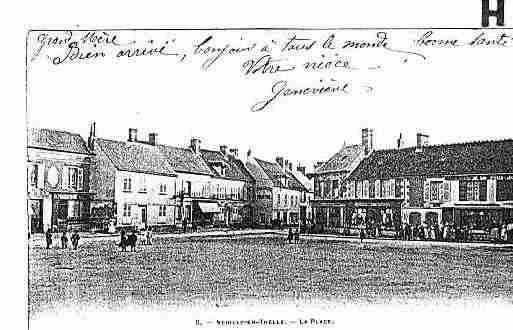 H
Grand Mère
Bien arrivé, bonjour à tous le monde bonne santé
Votre nièce
Geneviève
5. - NEUILLY-EN-THELLE. - LA PLACE.